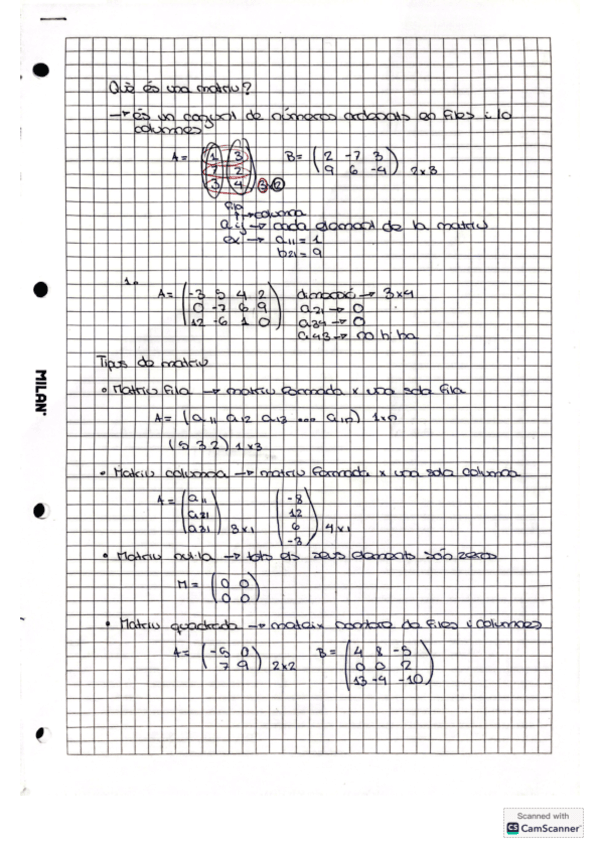 Què és una matriu?
→ és un conjunt de números ordenats en files i/o
columnes
A = (1 3
7 2
3 4) 3x2 B = (2 -7 3
9 6 -4) 2x3
fila
↑→ columna
aij → cada element de la matriu
ex → a11 = 1
b21 = 9
1.
A = (-3 5 4 2
0 -7 6 9
12 -6 1 0) dimensió → 3x4
a21 → 0
a34 → 0
a43 → no hi ha
Tipus de matriu
• Matriu fila → matriu formada x una sola fila
A = (a11 a12 a13 ... a1n) 1xn
(5 3 2) 1x3
• Matriu columna → matriu formada x una sola columna
A = (a11
a21
a31) 3x1 (-8
12
6
-3) 4x1
• Matriu nul·la → tots els seus elements són zeros
M = (0 0
0 0)
• Matriu quadrada → mateix nombre de files i columnes
A = (-5 0
7 9) 2x2 B = (4 8 -5
0 0 2
13 -4 -10)
MILAN
Scanned with
CS CamScanner